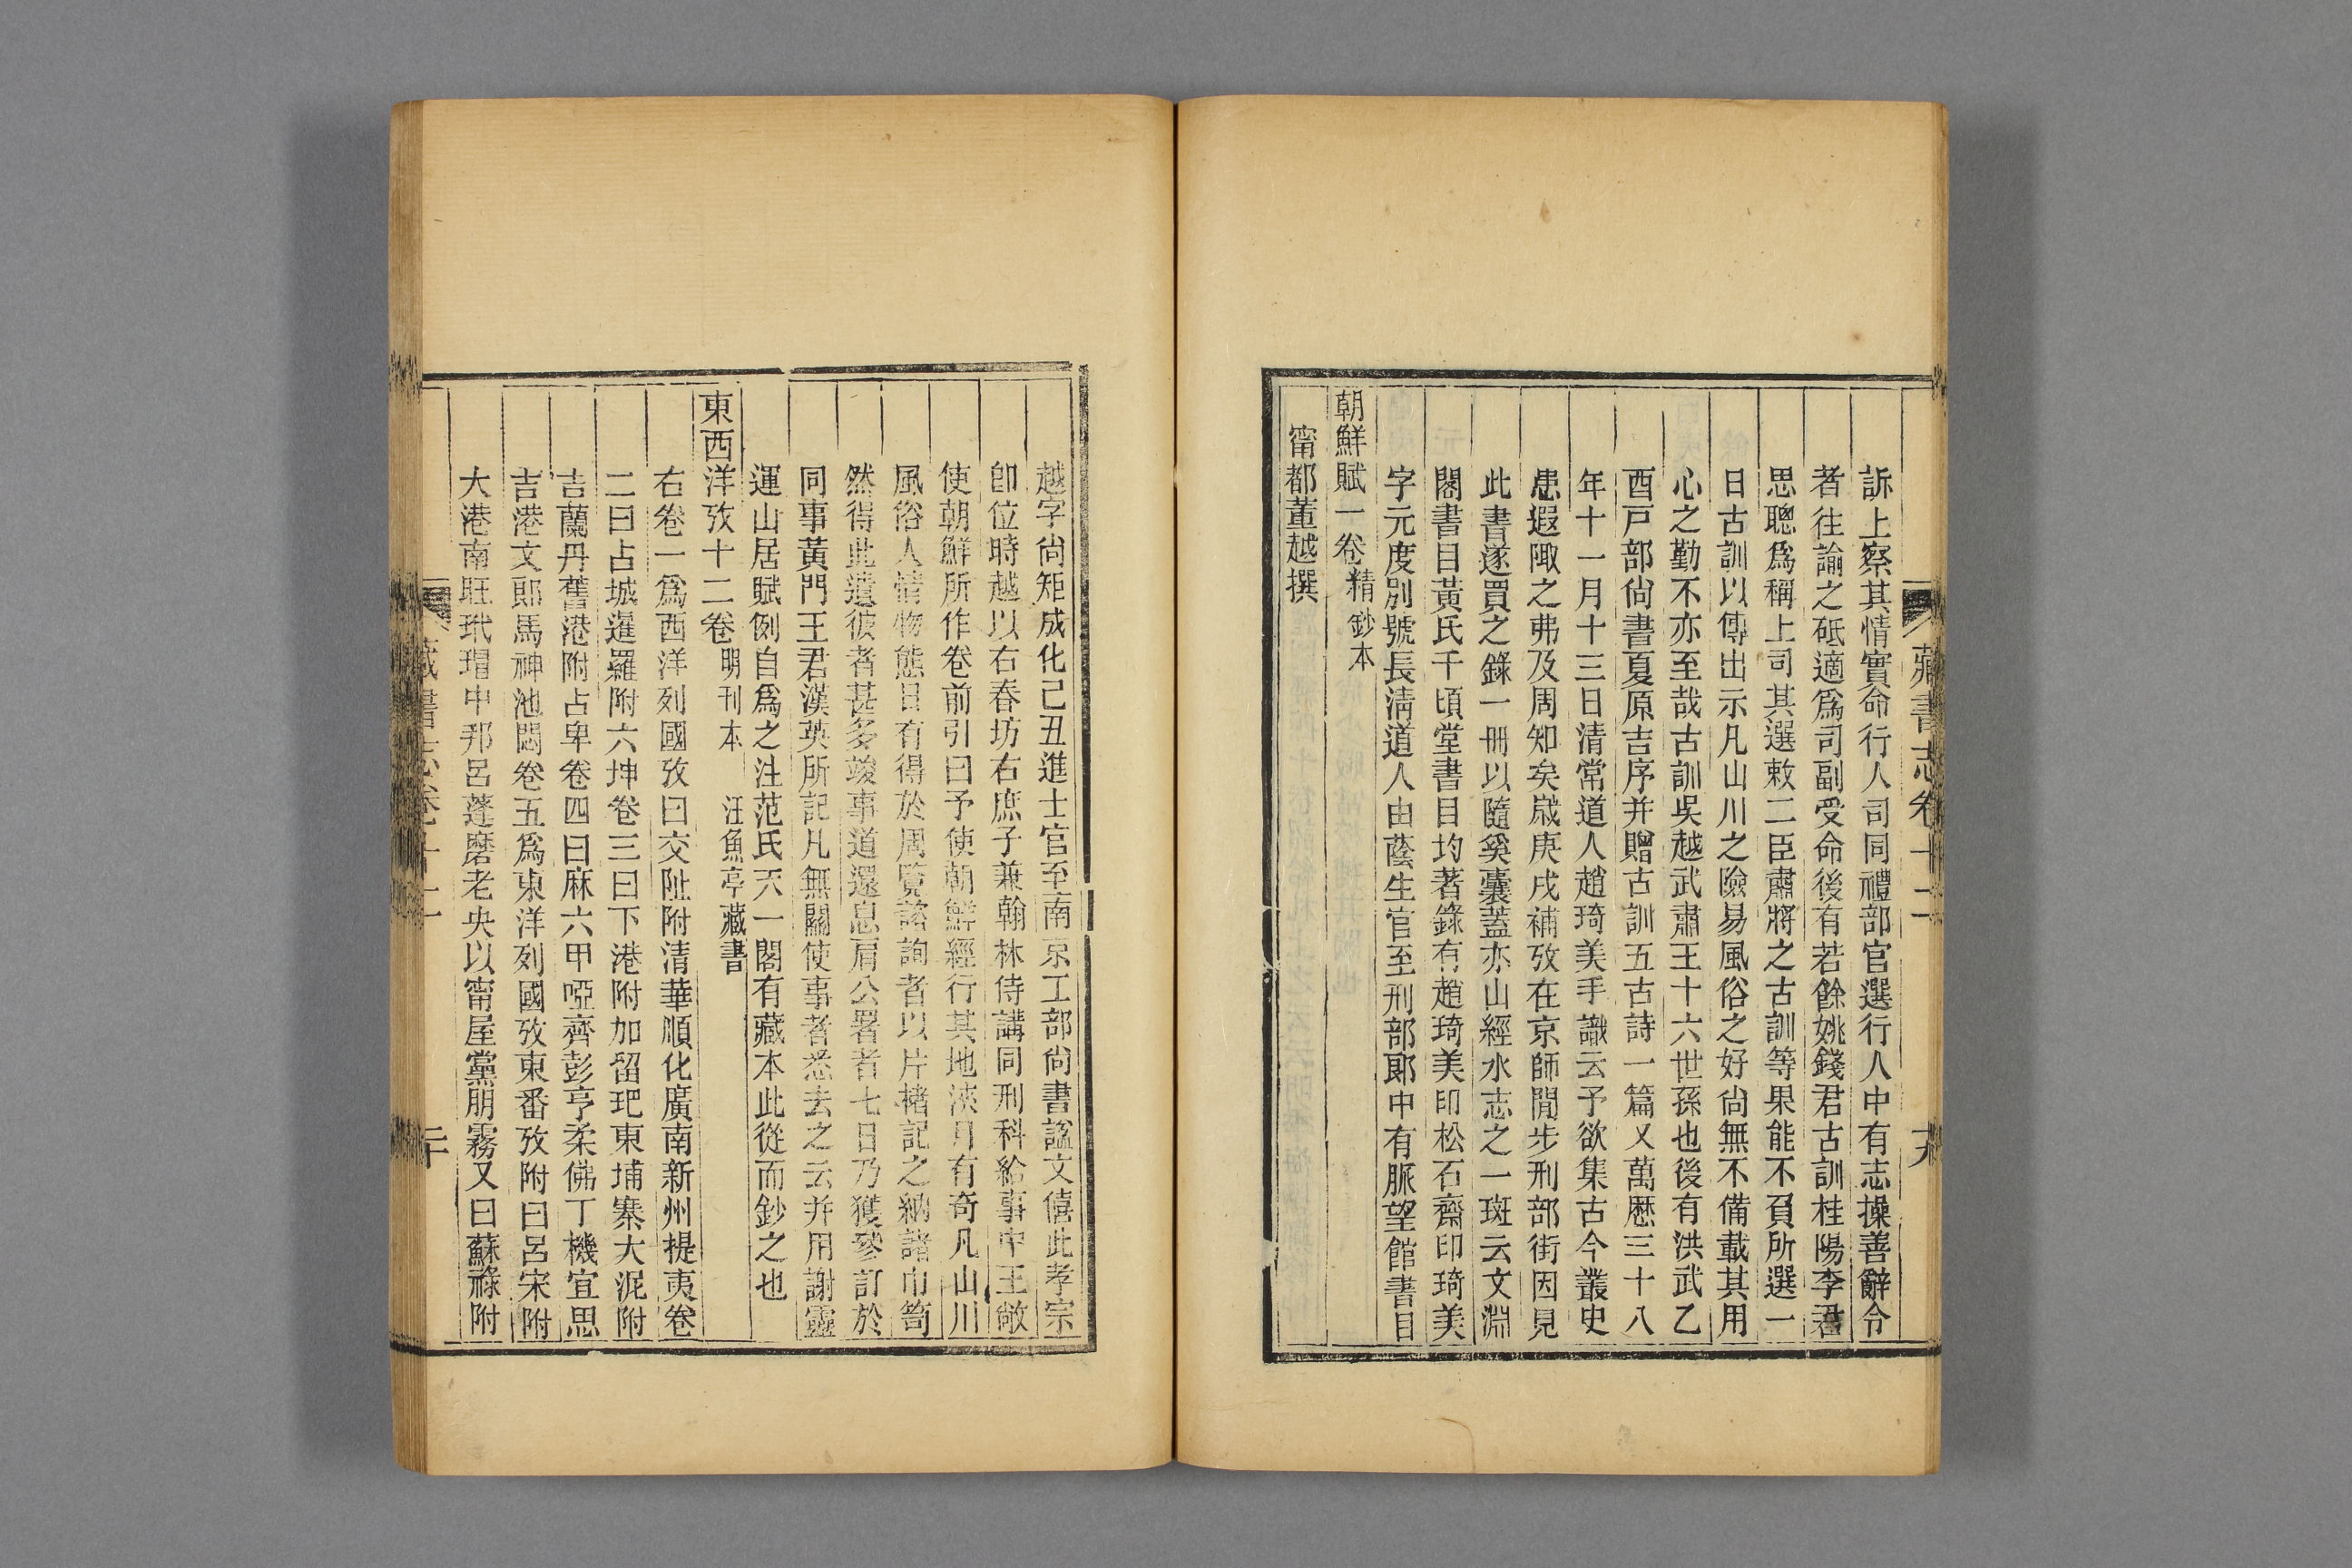 藏書志卷十二
十九
訴上察其情實命行人司同禮部官選行人中有志操善辭令
者往諭之砥適爲司副受命後有若餘姚錢君古訓桂陽李君
思聰爲稱上司其選敕二臣肅將之古訓等果能不負所選一
日古訓以傳出示凡山川之險易風俗之好尙無不備載其用
心之勤不亦至哉古訓吳越武肅王十六世孫也後有洪武乙
酉戸部尙書夏原吉序并贈古訓五古詩一篇又萬厯三十八
年十一月十三日清常道人趙琦美手識云予欲集古今叢史
患遐陬之弗及周知矣嵗庚戌補攷在京師閒步刑部街因見
此書遂買之錄一冊以隨奚囊蓋亦山經水志之一斑云文淵
閣書目黃氏千頃堂書目均著錄有趙琦美印松石齋印琦美
字元度別號長清道人由蔭生官至刑部郞中有脈望館書目
朝鮮賦一卷精鈔本
甯都董越撰
越字尙矩成化己丑進士官至南京工部尙書諡文僖此孝宗
卽位時越以右春坊右庶子兼翰林侍講同刑科給事中王敞
使朝鮮所作卷前引曰予使朝鮮經行其地浹月有奇凡山川
風俗人情物態日有得於周覽諮詢者以片楮記之納諸巾笥
然得此遺彼者甚多竣事道還息肩公署者七日乃獲參訂於
同事黃門王君漢英所記凡無關使事者悉去之云并用謝靈
運山居賦例自爲之注范氏天一閣有藏本此從而鈔之也
東西洋攷十二卷明刊本 汪魚亭藏書
右卷一爲西洋列國攷曰交阯附清華順化廣南新州提夷卷
二曰占城暹羅附六坤卷三曰下港附加留𤣰東埔寨大泥附
吉蘭丹舊港附占卑卷四曰麻六甲啞齊彭亨柔佛丁機宜思
吉港文郞馬神池悶卷五爲東洋列國攷東番攷附曰呂宋附
大港南旺玳瑁中邦呂蓬磨老央以甯屋黨朋霧又曰蘇祿附
藏書志卷十二
二十